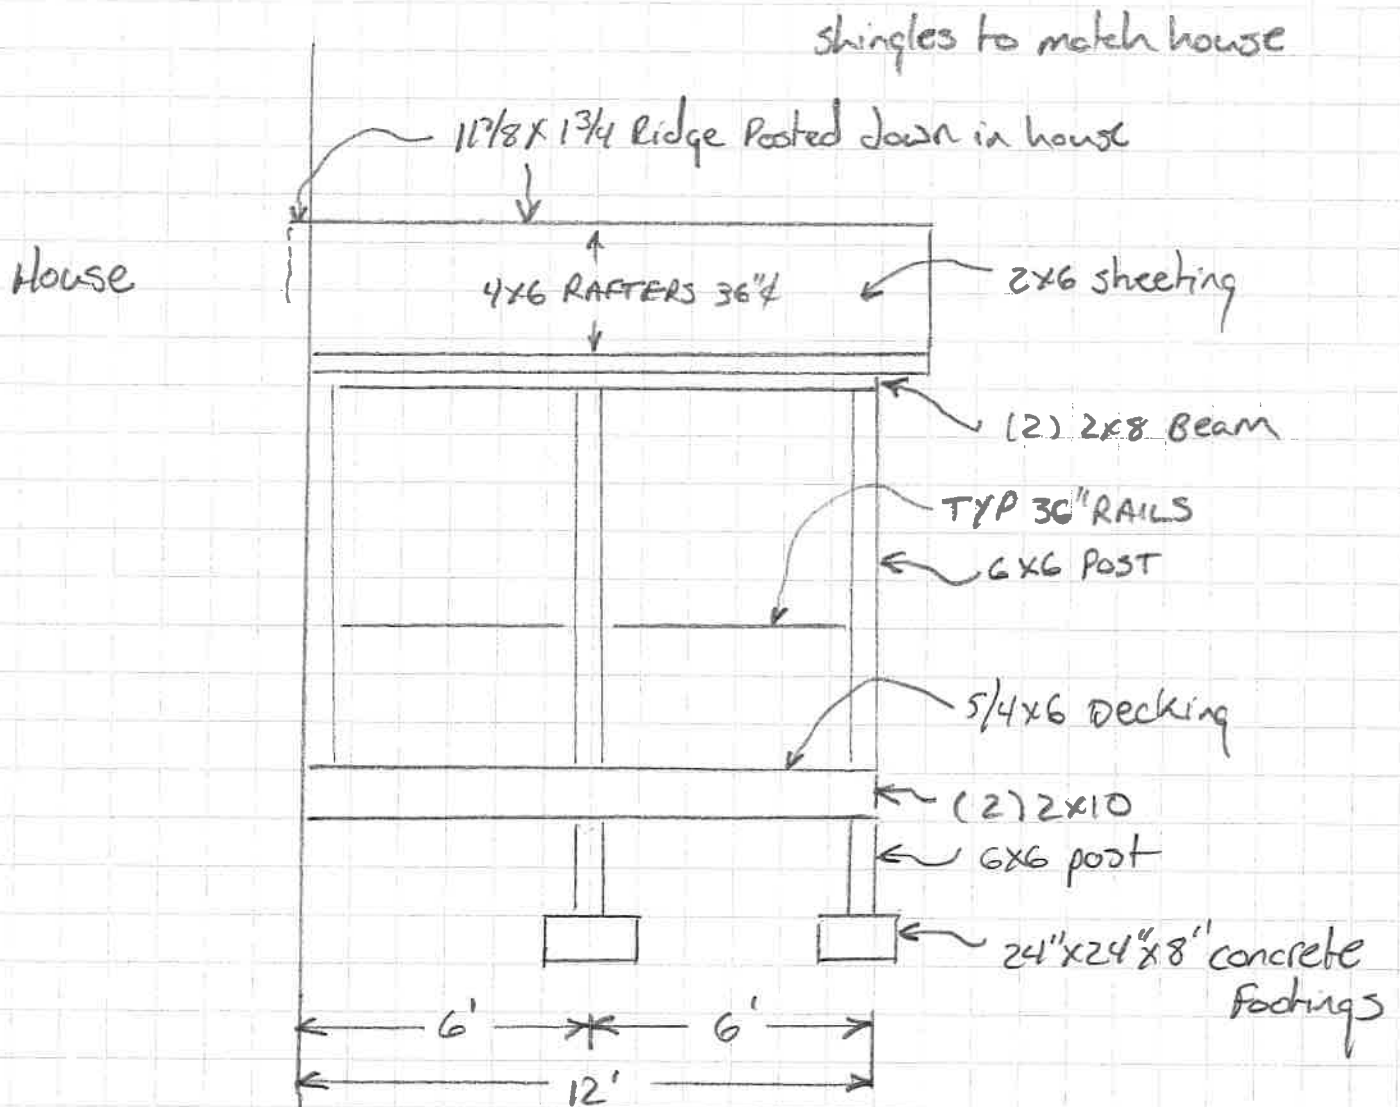 shingles to match house
11 7/8 X 1 3/4 Ridge Posted down in house
House
4X6 RAFTERS 36"¢
2X6 sheeting
(2) 2X8 Beam
TYP 36" RAILS
6X6 POST
5/4X6 Decking
(2) 2X10
6X6 post
24"X24"X8" concrete
Footings
6'
6'
12'